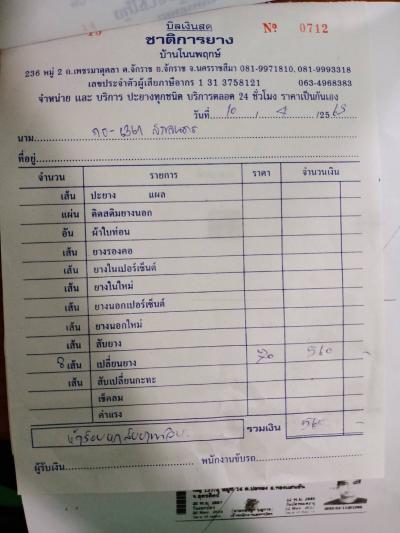 บิลเงินสด
Nº 0712
ชาติการยาง
บ้านโนนพฤกษ์
236 หมู่ 2 ถ.เพชรมาตุคลา ต.จักราช อ.จักราช จ.นครราชสีมา 081-9971810, 081-9993318
เลขประจำตัวผู้เสียภาษีอากร 1 31 3758121 063-4968383
จำหน่าย และ บริการ ปะยางทุกชนิด บริการตลอด 24 ชั่วโมง ราคาเป็นกันเอง
วันที่ 10 / 4 / 2565
นาม
ที่อยู่
จำนวน รายการ ราคา จำนวนเงิน
เส้น ปะยาง แผล
แผ่น ติดสติมยางนอก
อัน ผ้าใบท่อน
เส้น ยางรองคอ
เส้น ยางในเปอร์เซ็นต์
เส้น ยางในใหม่
เส้น ยางนอกเปอร์เซ็นต์
เส้น ยางนอกใหม่
เส้น สับยาง
8 เส้น เปลี่ยนยาง 70 560
เส้น สับเปลี่ยนกะทะ
เช็คลม
ค่าแรง
ห้าร้อยหกสิบบาทถ้วน รวมเงิน 560
ผู้รับเงิน พนักงานขับรถ